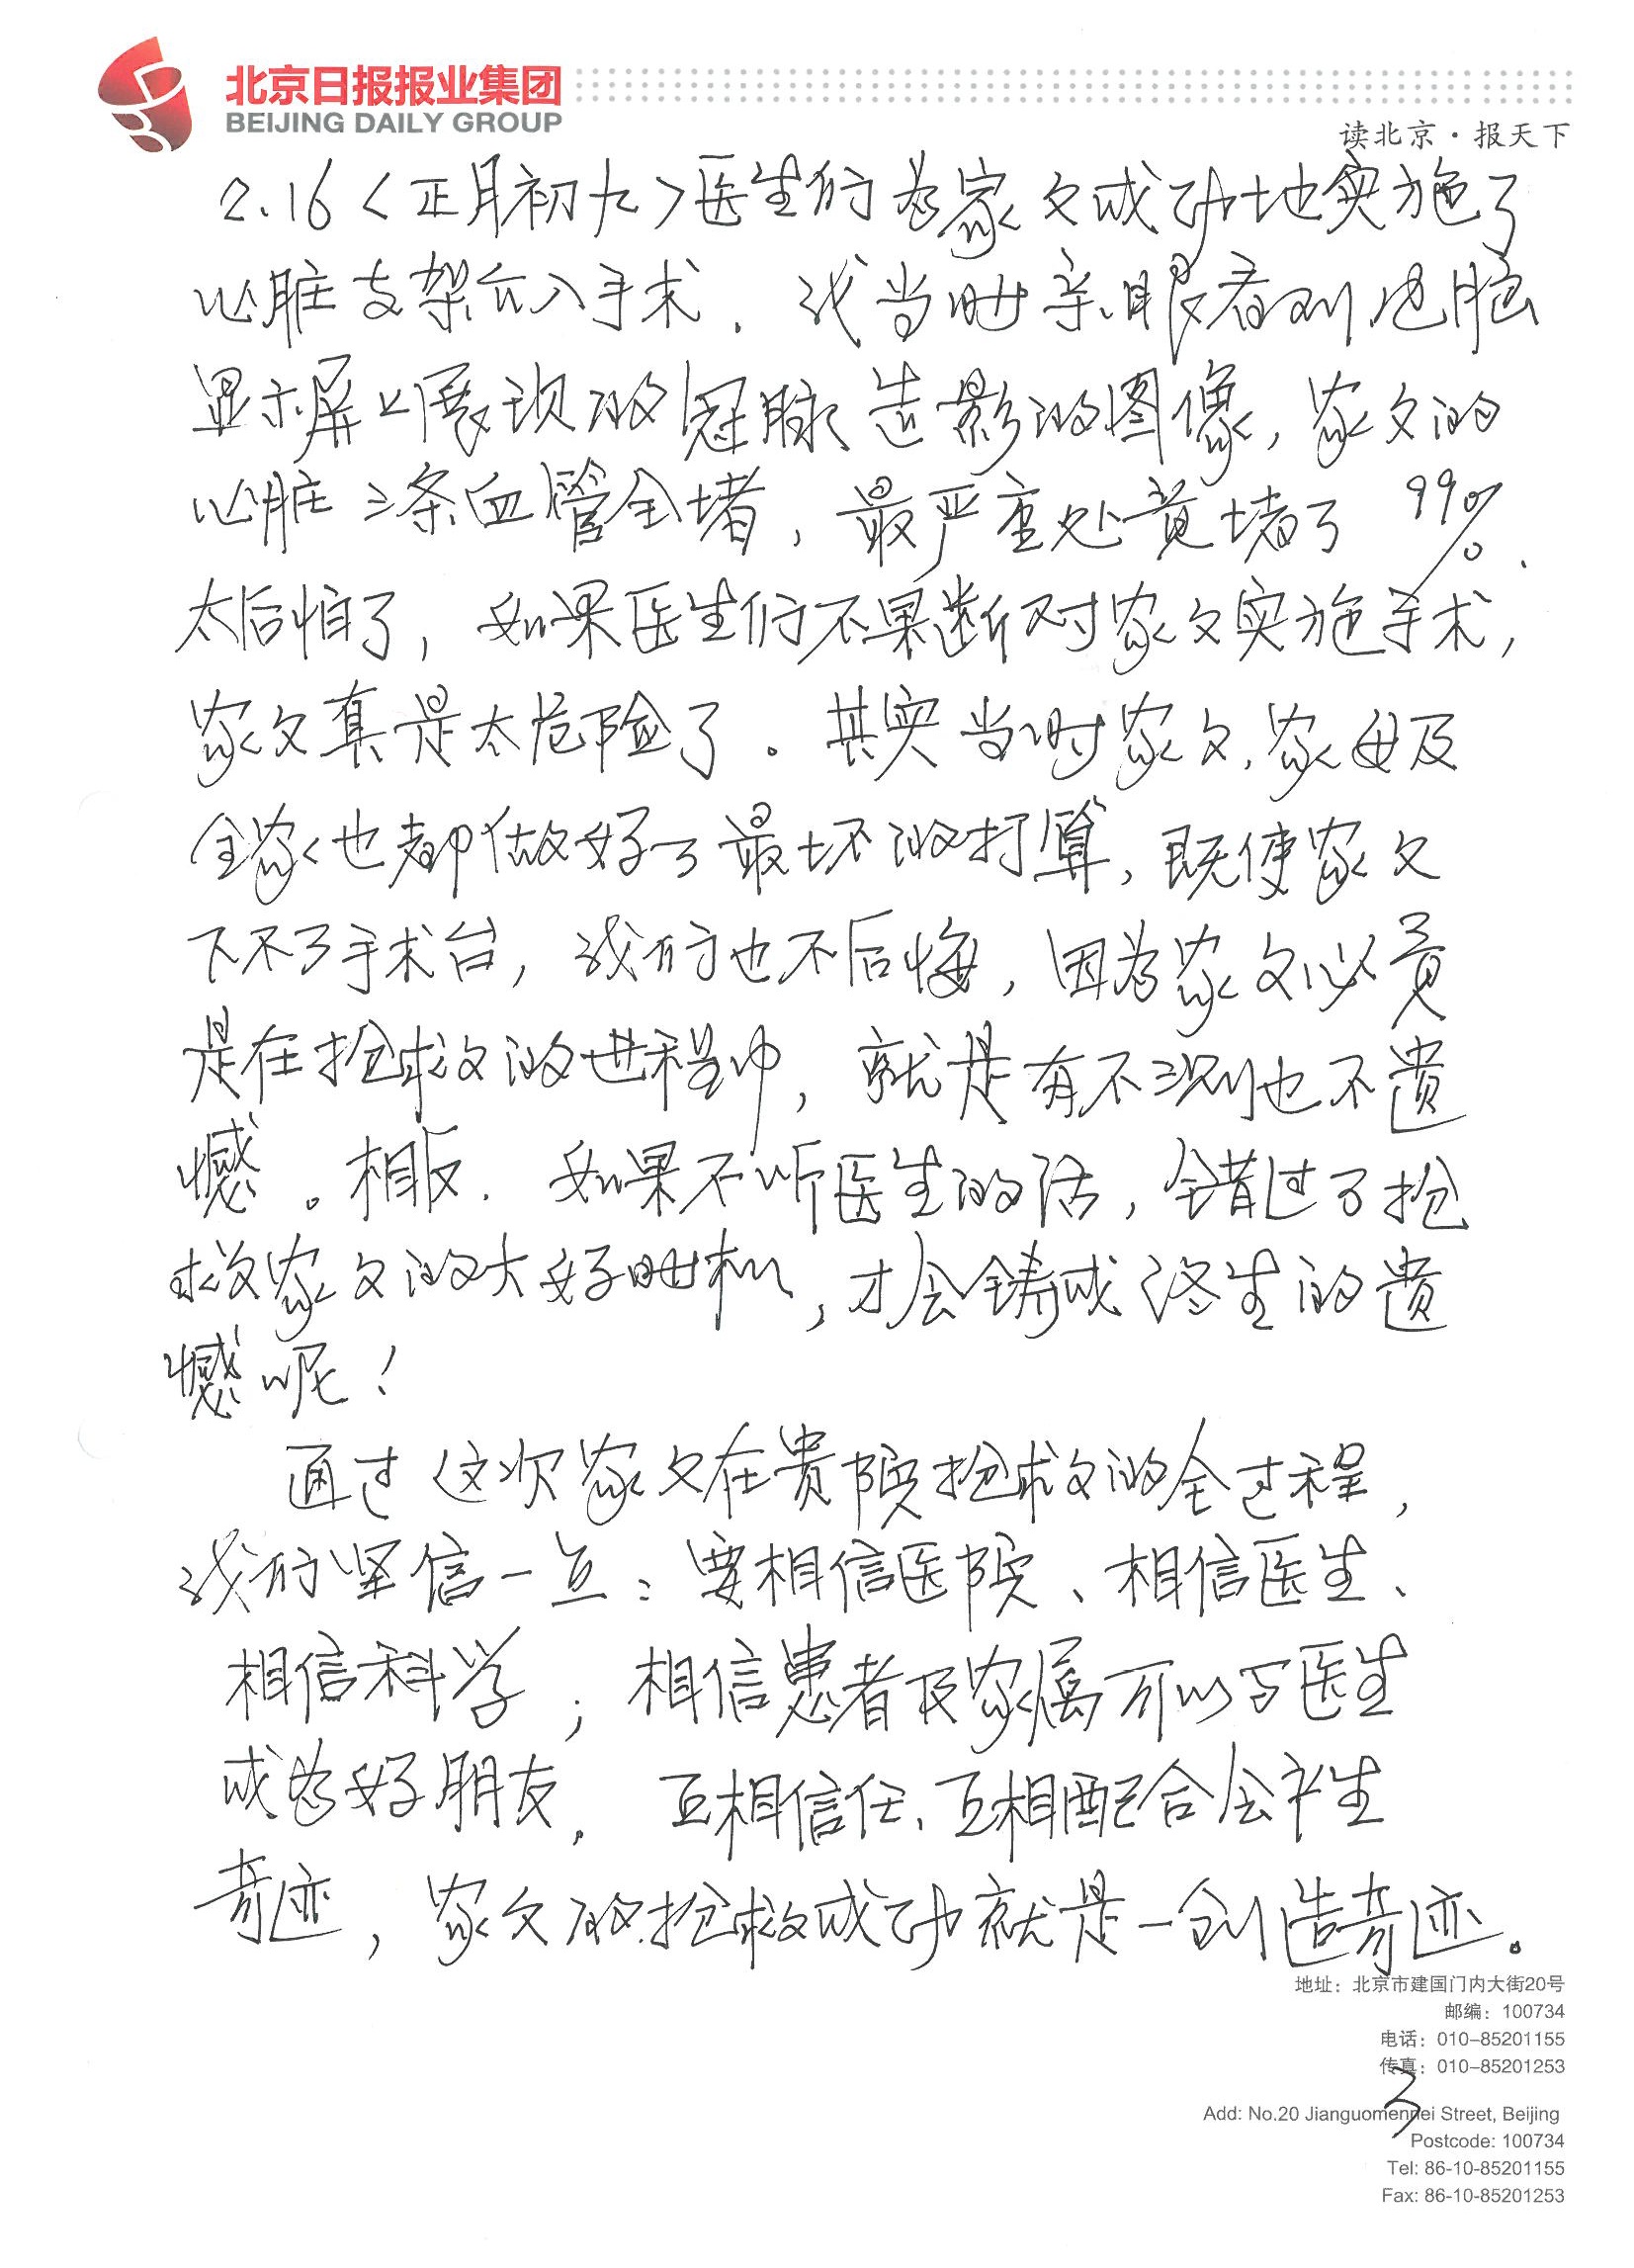 北京日报报业集团
BEIJING DAILY GROUP
读北京·报天下
2.16〈正月初九〉医生们为家父成功地实施了
心脏支架介入手术. 我当时亲眼看到电脑
显示屏上展现的冠脉造影的图像, 家父的
心脏三条血管全堵, 最严重处竟堵了99%.
太后怕了, 如果医生们不果断对家父实施手术,
家父真是太危险了。其实当时家父、家母及
全家也都做好了最坏的打算, 既使家父
下不了手术台, 我们也不后悔, 因为家父必竟
是在抢救的进程中, 就是有不测也不遗
憾。相反. 如果不听医生的话, 错过了抢
救家父的大好时机, 才会铸成终生的遗
憾呢!
通过这次家父在贵院抢救的全过程,
我们坚信一点: 要相信医院、相信医生、
相信科学; 相信患者及家属可以与医生
成为好朋友. 互相信任、互相配合会产生
奇迹, 家父的抢救成功就是一创造奇迹。
地址：北京市建国门内大街20号
邮编：100734
电话：010–85201155
传真：010–85201253
3
Add: No.20 Jianguomennei Street, Beijing
Postcode: 100734
Tel: 86-10-85201155
Fax: 86-10-85201253